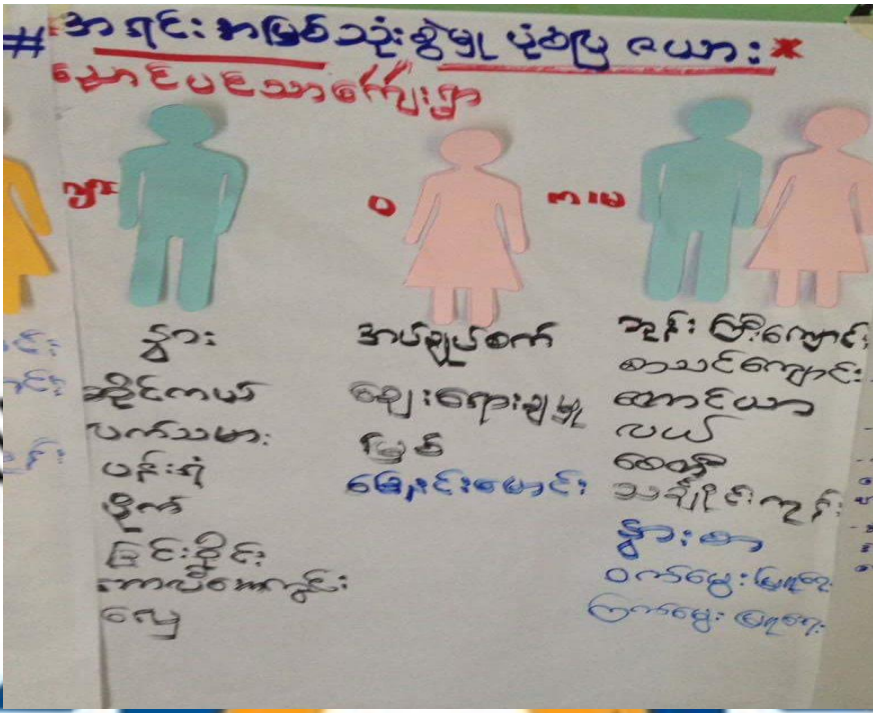 # အရင်းအမြစ်သုံးစွဲမှု ပုံစံပြ ဇယား *
ညောင်ပင်သာကျေးရွာ
ကျား
မ
ကျား၊မ
နွား
ဆိုင်ကယ်
လက်သမား
ပန်းရံ
ဖိုက်
ခြင်းခိုင်း
ဘောလုံးကွင်း
လှေ
အပ်ချုပ်စက်
ဈေးရောင်းချမှု
မြစ်
ဘုန်းကြီးကျောင်း
စာသင်ကျောင်း
တောင်ယာ
လယ်
စေတီ
သင်္ချိုင်းကုန်း
နွားစာ
ဝက်မွေးမြူရေး
ကြက်မွေးမြူရေး